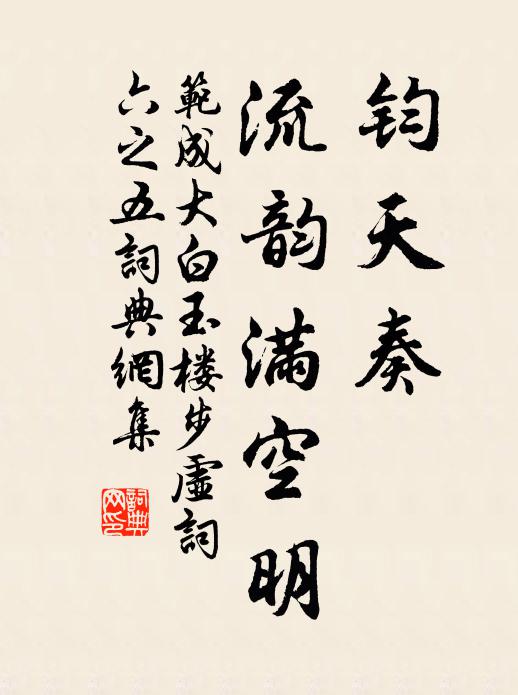 钧天奏
流韵满空明
範成大白玉楼步虚詞
六之五詞典網集
詞典网印